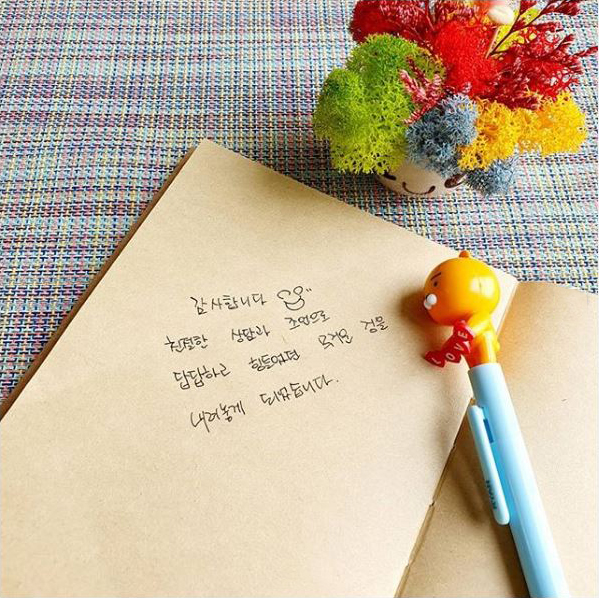 감사합니다
친절한 상담과 조언으로
답답하고 힘들었던 무거운 짐을
내려놓게 되었습니다.
LOVE
RYAN